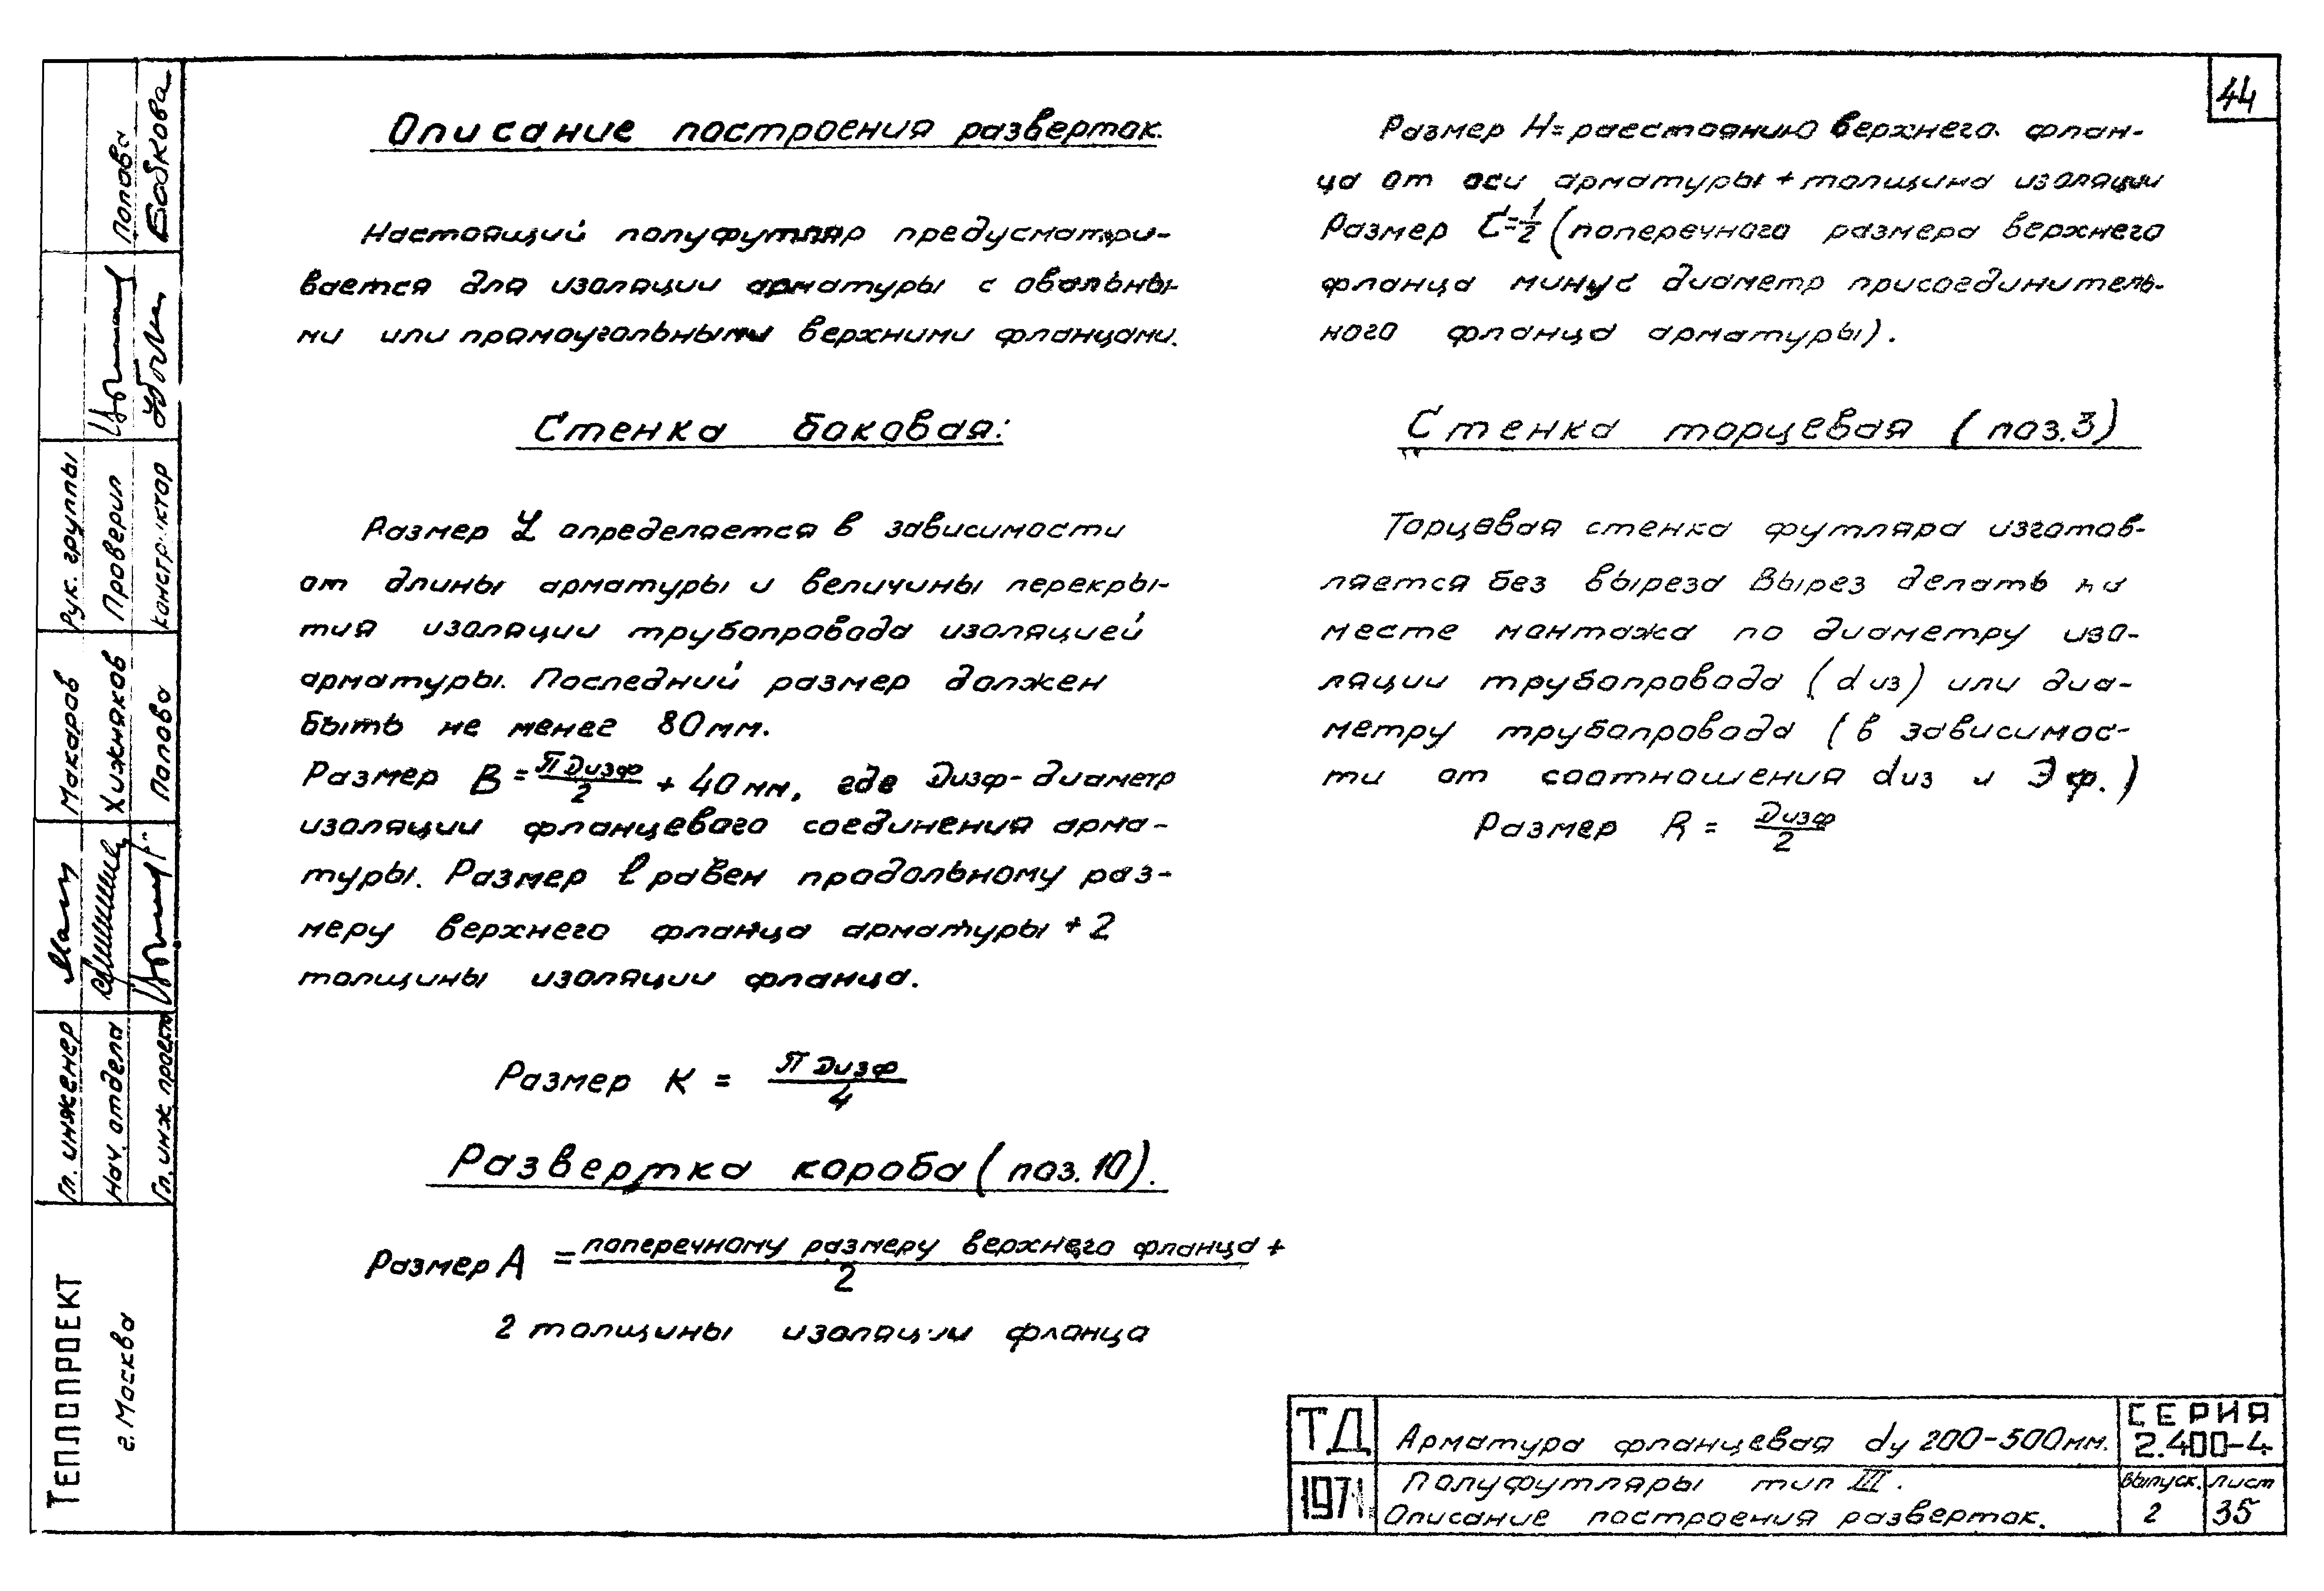 44
Описание построения разверток.
Настоящий полуфутляр предусматри-
вается для изоляции арматуры с овальны-
ми или прямоугольными верхними фланцами.
Стенка боковая:
Размер L определяется в зависимости
от длины арматуры и величины перекры-
тия изоляции трубопровода изоляцией
арматуры. Последний размер должен
быть не менее 80мм.
Размер В = ПДизф/2 + 40мм, где Dизф - диаметр
изоляции фланцевого соединения арма-
туры. Размер ℓ равен продольному раз-
меру верхнего фланца арматуры + 2
толщины изоляции фланца.
Размер К = ПДизф/4
Развертка короба (поз.10).
Размер А = поперечному размеру верхнего фланца/2 +
2 толщины изоляции фланца
Размер Н = расстоянию верхнего флан-
ца от оси арматуры + толщина изоляции
Размер С = 1/2 (поперечного размера верхнего
фланца минус диаметр присоединитель-
ного фланца арматуры).
Стенка торцевая (поз.3)
Торцевая стенка футляра изготов-
ляется без выреза Вырез делать на
месте монтажа по диаметру изо-
ляции трубопровода (dиз) или диа-
метру трубопровода (в зависимос-
ти от соотношения dиз и Эф.)
Размер R = Dизф/2
Рук. группы
Проверил Попова
Конструктор Бобкова
Гл. инженер Макаров
Нач. отдела Хижняков
Гл. инж. проекта Попова
ТЕПЛОПРОЕКТ
г. Москва
ТД
1971
Арматура фланцевая dу 200-500мм.
Полуфутляры тип III.
Описание построения разверток.
СЕРИЯ
2.400-4
выпуск. лист
2 35